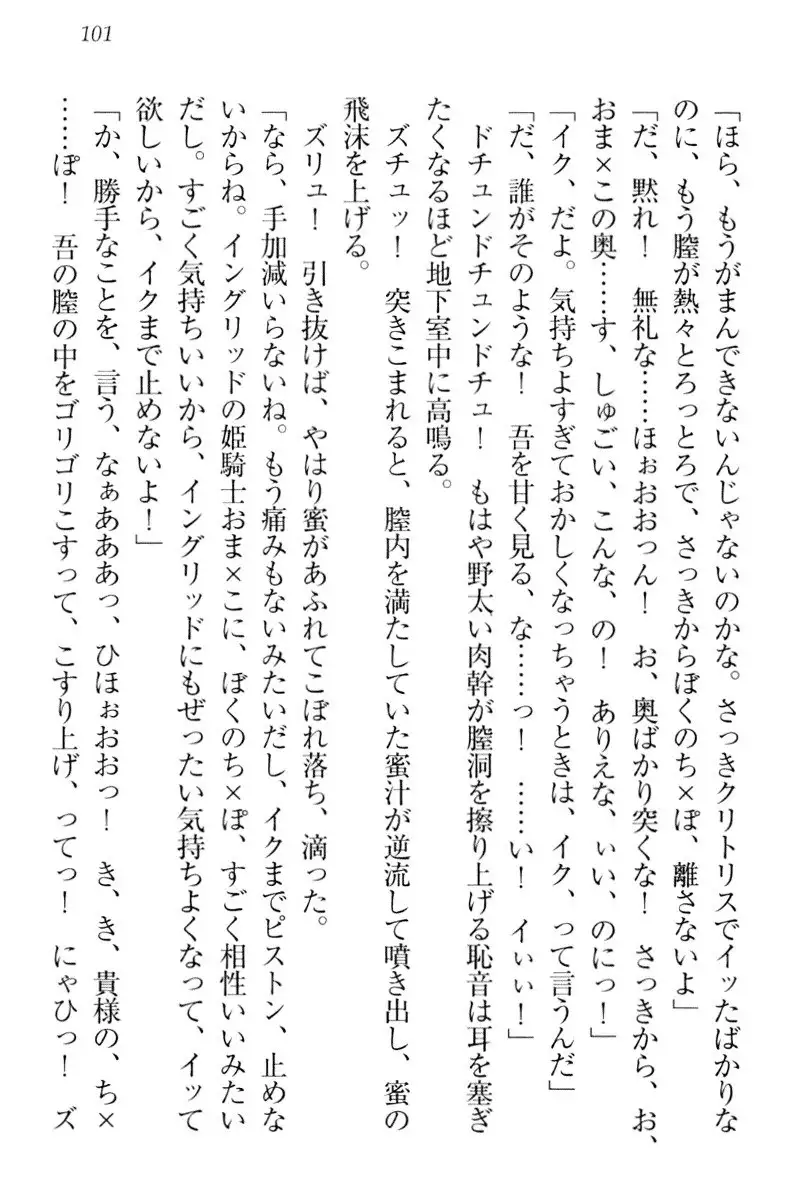 101
「ほら、もうがまんできないんじゃないのかな。さっきクリトリスでイッたばかりな
のに、もう膣が熱々とろっとろで、さっきからぼくのち×ぽ、離さないよ」
「だ、黙れ！　無礼な……ほぉおおっん！　お、奥ばかり突くな！　さっきから、お、
おま×この奥……す、しゅごい、こんな、の！　ありえな、ぃい、のにっ！」
「イク、だよ。気持ちよすぎておかしくなっちゃうときは、イク、って言うんだ」
「だ、誰がそのような！　吾を甘く見る、な……っ！　……い！　イぃぃ！」
ドチュンドチュンドチュ！　もはや野太い肉幹が膣洞を擦り上げる恥音は耳を塞ぎ
たくなるほど地下室中に高鳴る。
ズチュッ！　突きこまれると、膣内を満たしていた蜜汁が逆流して噴き出し、蜜の
飛沫を上げる。
ズリュ！　引き抜けば、やはり蜜があふれてこぼれ落ち、滴った。
「なら、手加減いらないね。もう痛みもないみたいだし、イクまでピストン、止めな
いからね。イングリッドの姫騎士おま×こに、ぼくのち×ぽ、すごく相性いいみたい
だし。すごく気持ちいいから、イングリッドにもぜったい気持ちよくなって、イッて
欲しいから、イクまで止めないよ！」
「か、勝手なことを、言う、なぁあああっ、ひほぉおおっ！　き、き、貴様の、ち×
……ぽ！　吾の膣の中をゴリゴリこすって、こすり上げ、ってっ！　にゃひっ！　ズ